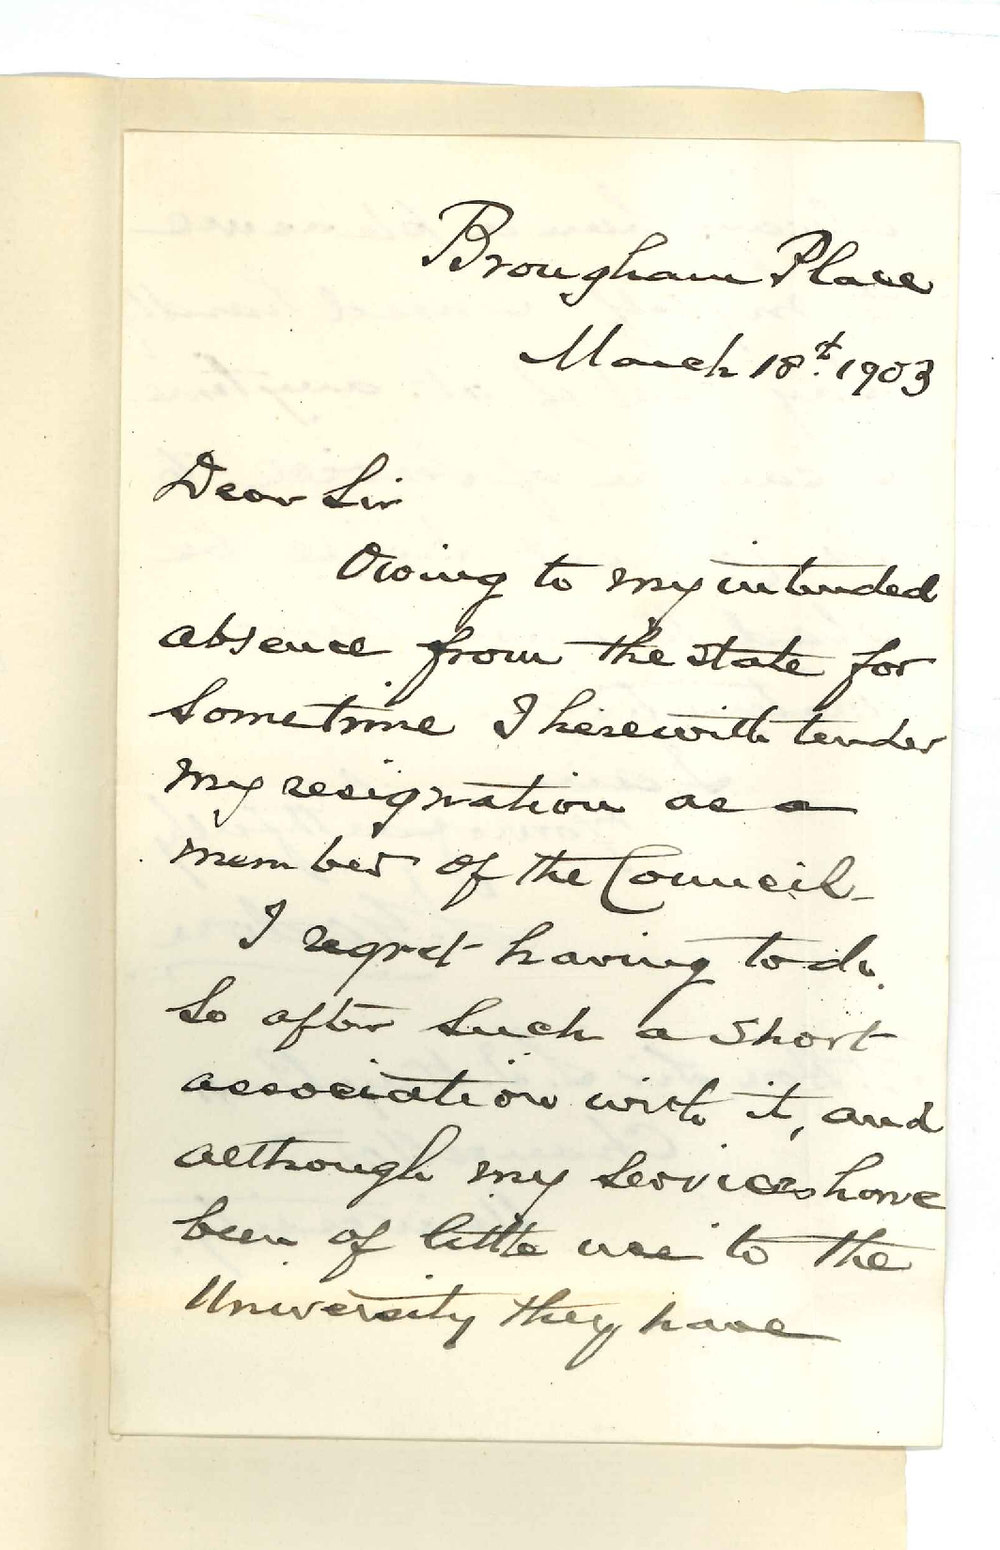 Brougham Place
March 18th. 1903
Dear Sir
Owing to my intended
absence from the state for
sometime I herewith tender
my resignation as a
member of the Council_
I regret having to do
so after such a short
association with it, and
although my services have
been of little use to the
University they have